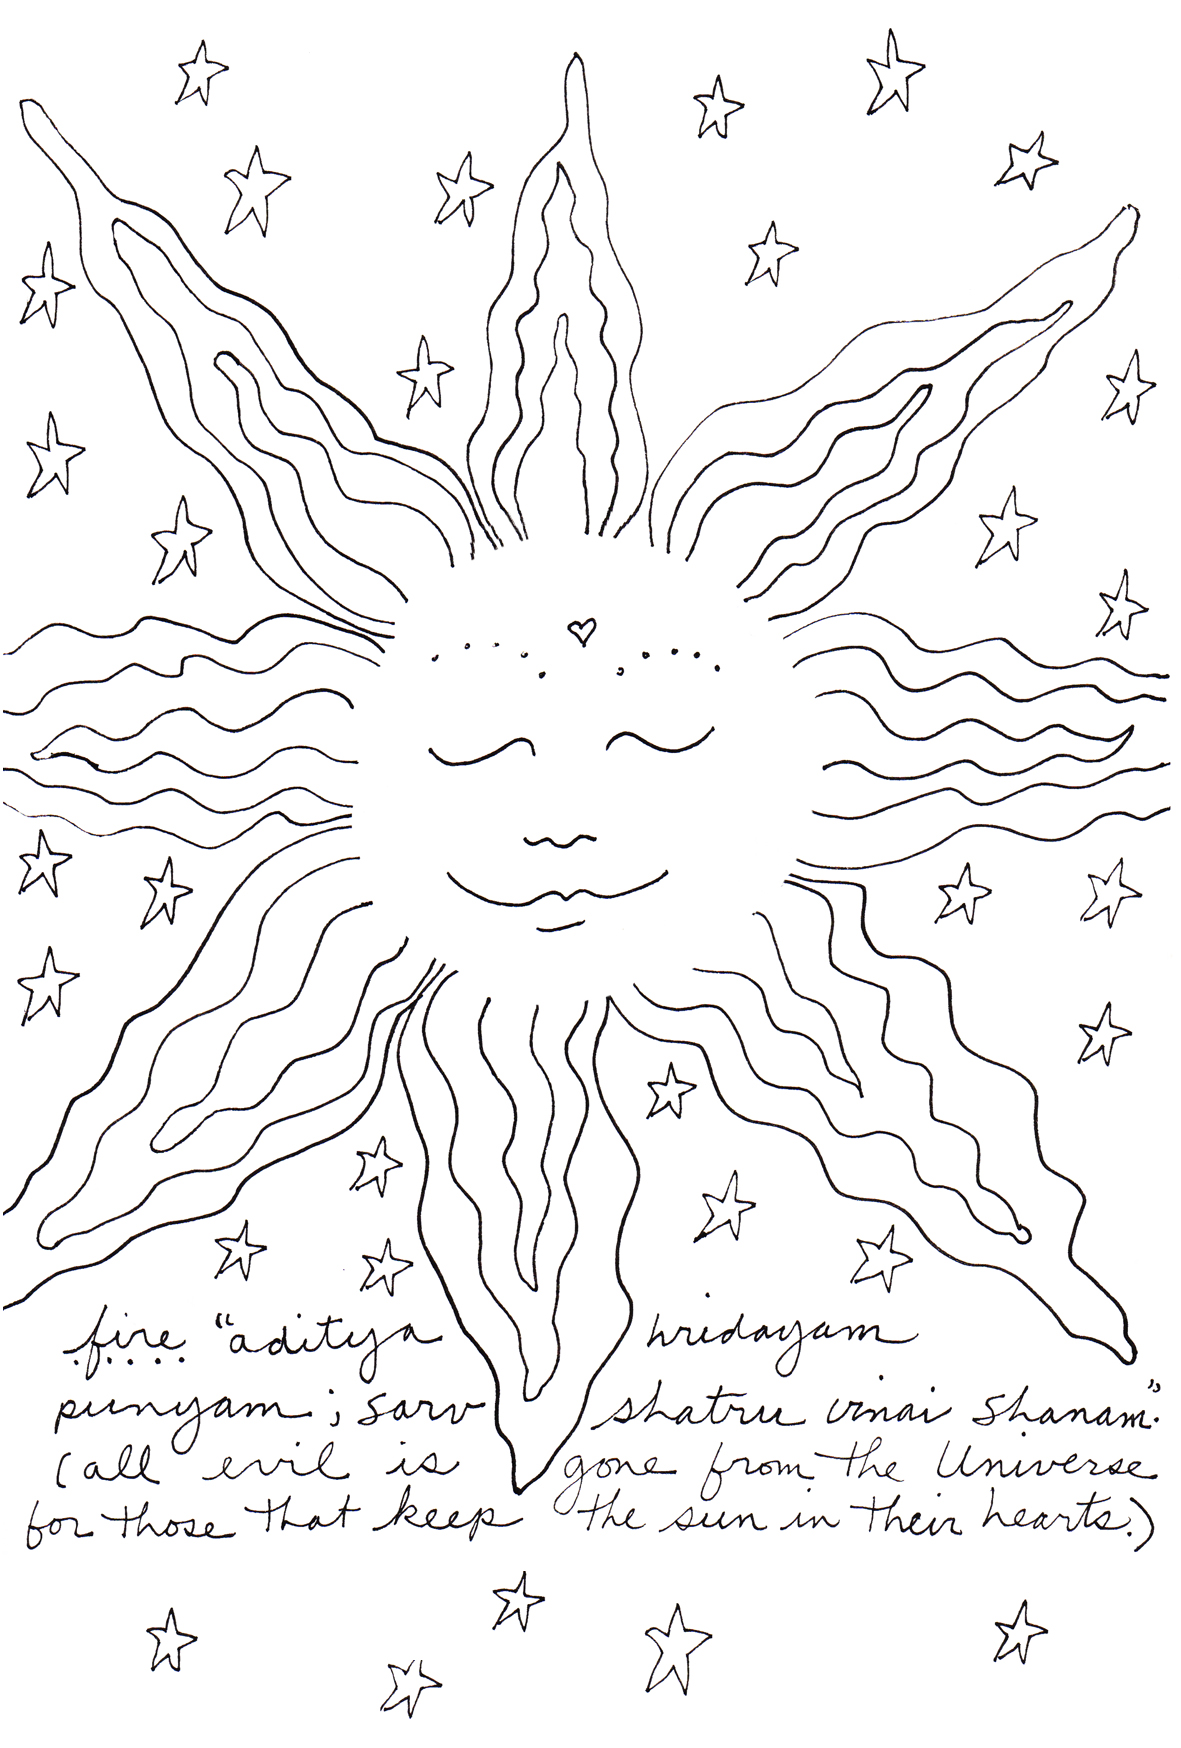 fire "aditya hridayam
punyam; sarv shatru vinai shanam."
(all evil is gone from the Universe
for those that keep the sun in their hearts.)